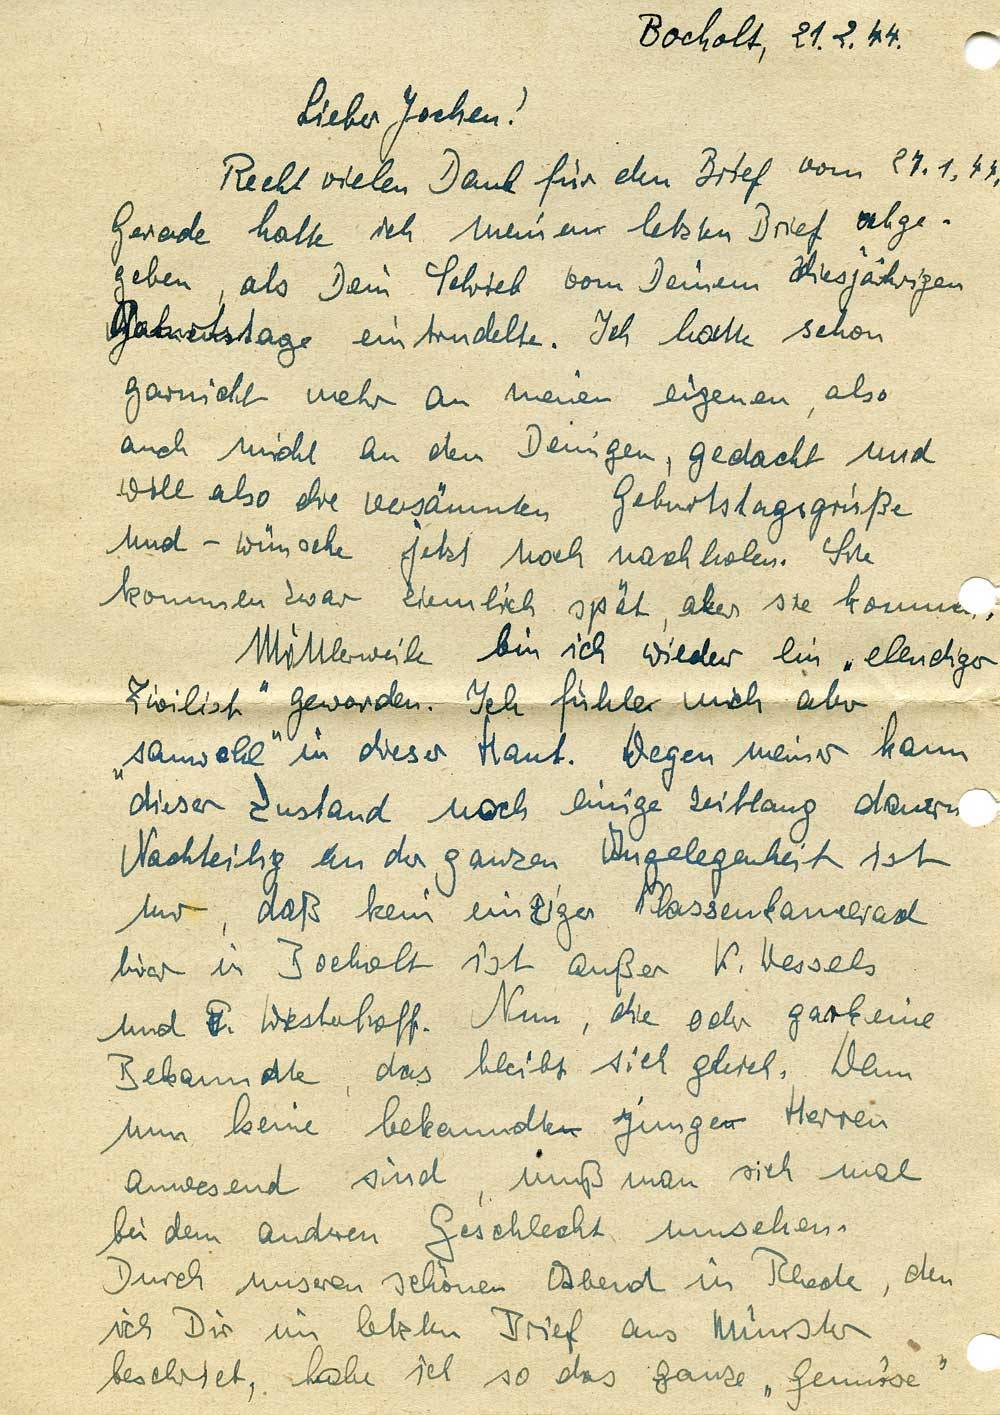 Bocholt, 21.2.44.
Lieber Jochen!
Recht vielen Dank für den Brief vom 27.1.44.
Gerade hatte ich meinen letzten Brief abge-
geben, als Dein Schrieb vom Deinem diesjährigen
Geburtstage eintrudelte. Ich hatte schon
garnicht mehr an meinen eigenen, also
auch nicht an den Deinigen, gedacht und
will also die versäumten Geburtstagsgrüße
und - wünsche jetzt noch nachholen. Sie
kommen zwar ziemlich spät, aber sie kommen.
Mittlerweile bin ich wieder ein „elendiger
Zivilist" geworden. Ich fühle mich aber
„sauwohl" in dieser Haut. Wegen meiner kann
dieser Zustand noch einige zeitlang dauern
Nachteilig an der ganzen Angelegenheit ist
nur, daß kein einziger Klassenkamerad
hier in Bocholt ist außer K. Wessels
und Westerhoff. Nun, die oder garkeine
Bekanndte, das bleibt sich gleich. Wenn
nun keine bekanndten jungen Herren
anwesend sind, muß man sich mal
bei dem anderen Geschlecht umsehen.
Durch unseren schönen Abend in Rhede, den
ich Dir im letzten Brief aus Münster
beschriet, habe ich so das ganze „Gemüse"